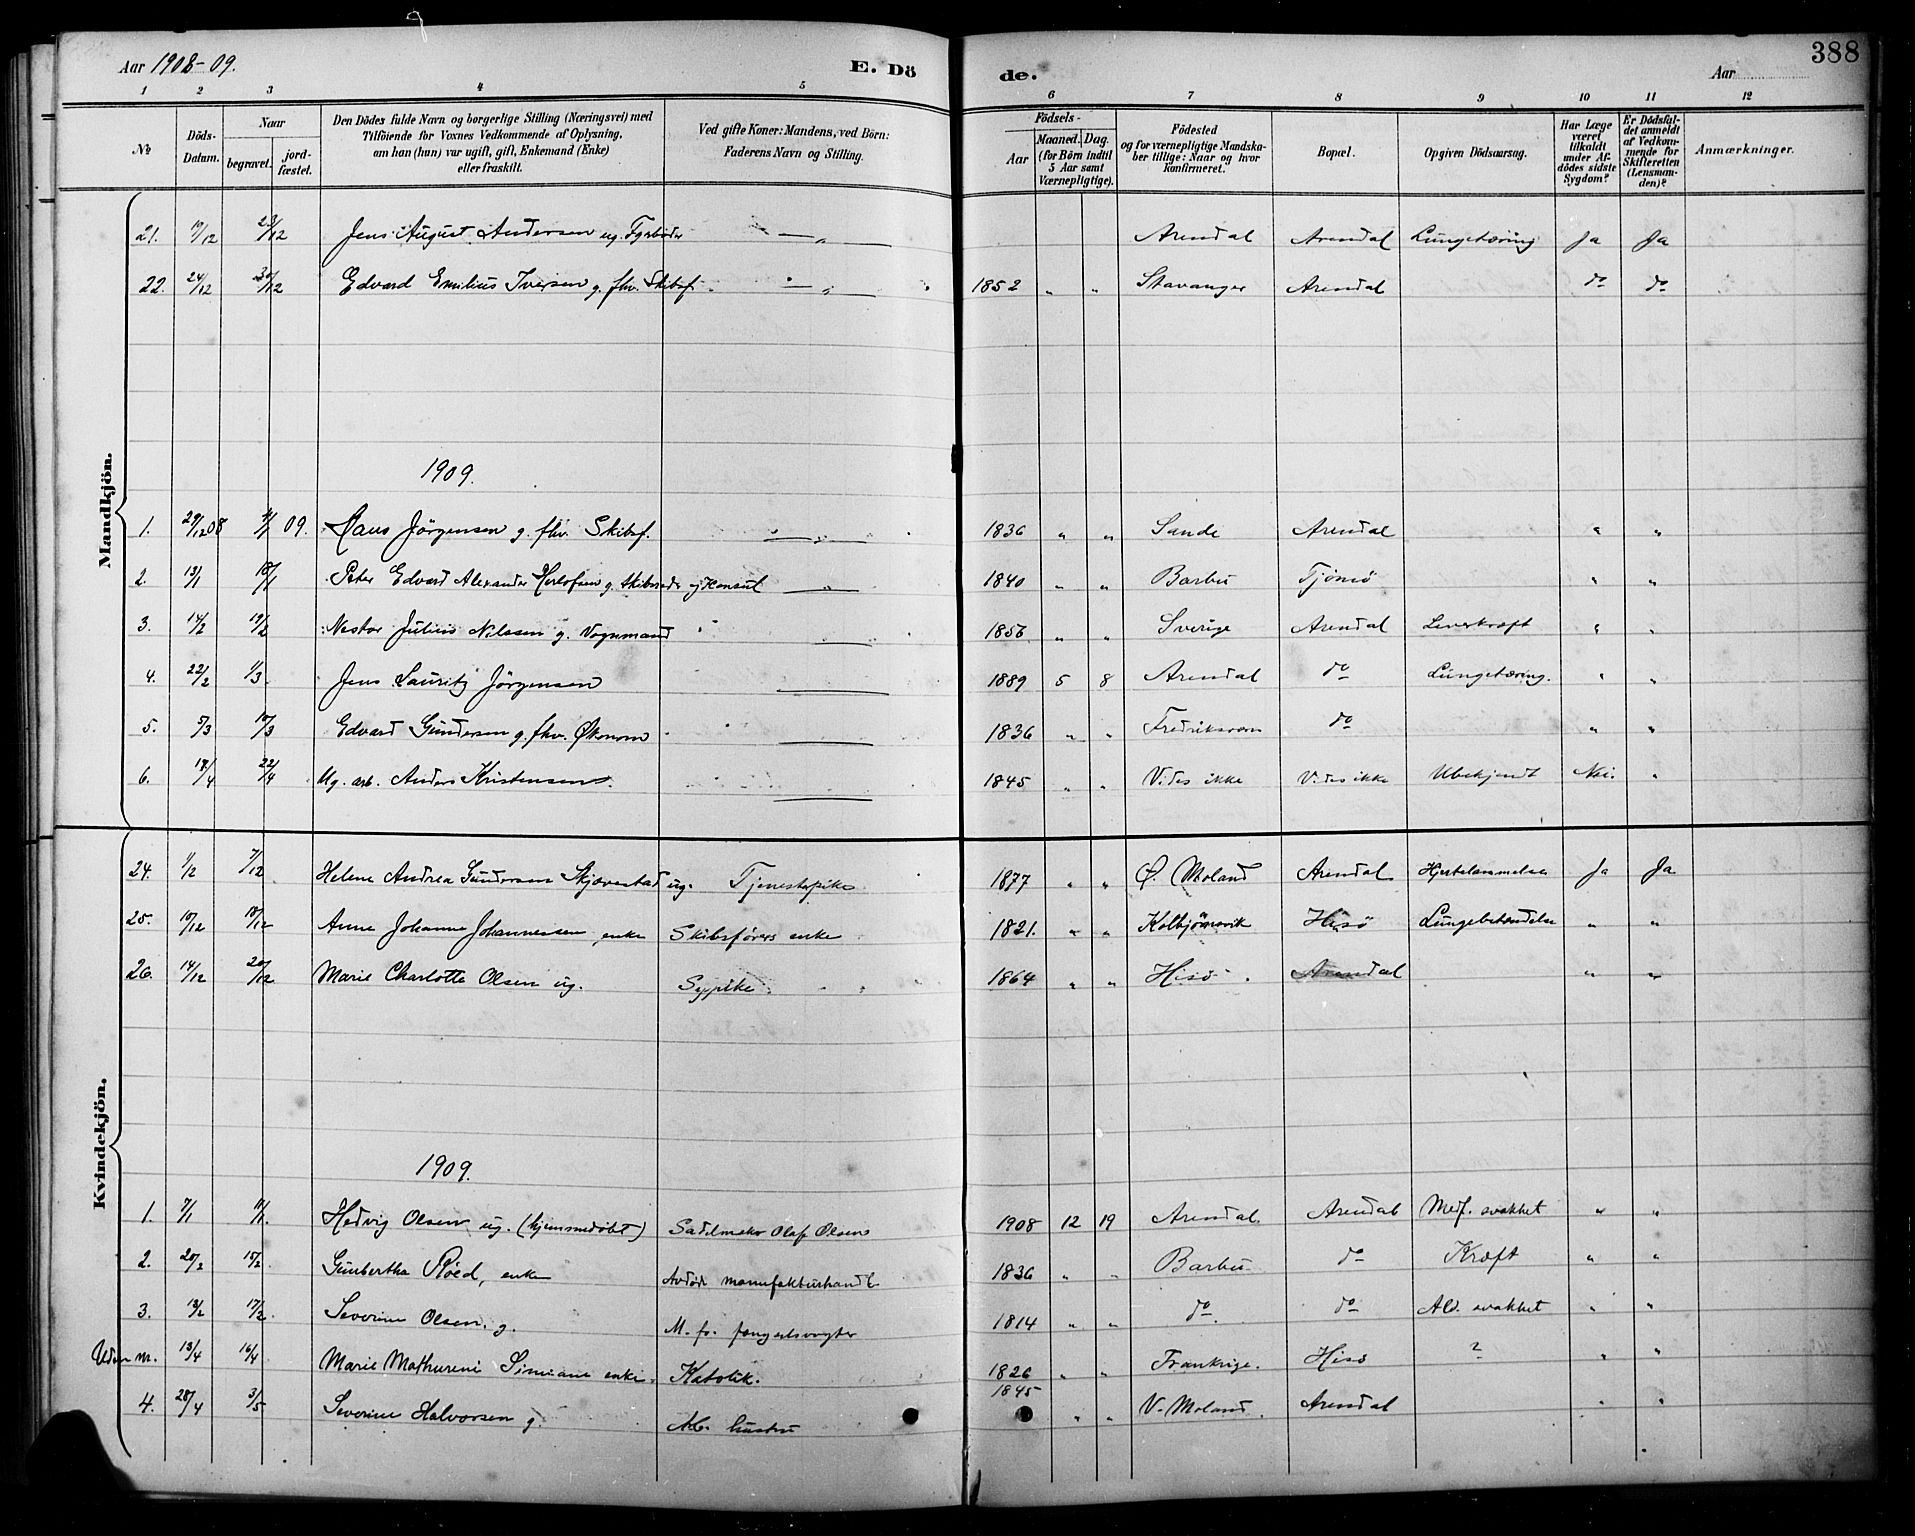 Aar 1908-09.
E. Dö
de.
Aar
388
1 2 3 4 5 6 7 8 9 10 11 12
No
Döds-Datum.
Naar
begravet.
jord-fæstet.
Den Dödes fulde Navn og borgerlige Stilling (Næringsvei) med
Tilföiende for Voxnes Vedkommende af Oplysning,
om han (hun) var ugift, gift, Enkemand (Enke)
eller fraskilt.
Ved gifte Koner: Mandens, ved Börn:
Faderens Navn og Stilling.
Födsels-
Aar
Maaned. Dag.
(for Börn indtil
5 Aar samt
Værnepligtige).
Födested
og for værnepligtige Mandska-
ber tillige: Naar og hvor
konfirmeret.
Bopæl.
Opgiven Dödsaarsag.
Har Læge
været
tilkaldt
under Af-
dödes sidste
Sygdom?
Er Dödsfal-
det anmeldt
af Vedkom-
mende for
Skifteretten
(Lensman-
den)?
Anmærkninger.
Mandkjön.
21. 19/12 23/12 Jens August Andersen ug. Fyrböder — „ — Arendal Arendal Lungetæring Ja Ja
22. 24/12 30/12 Edvard Emilius Iversen g. fhv. Skibsf. — „ — 1852 „ „ Stavanger Arendal do do
1909.
1. 29/12 08 4/1 09. Hans Jörgensen g. fhv. Skibsf. — „ — 1836 „ „ Sande Arendal „ „
2. 13/1 18/1 Peter Edvard Alexander Herlofsen g. Skibsreder og Konsul — „ — 1840 „ „ Barbu Tjömö „ „
3. 14/2 19/2 Nestor Julius Nilssen g. Vognmand „ 1856 „ „ Sverige Arendal Leverkræft „ „
4. 22/2 1/3 Jens Lauritz Jörgensen — 1889 5 8 Arendal do Lungetæring. „ „
5. 5/3 10/3 Edvard Gundersen g. fhv. Økonom — 1836 „ „ Fredriksværn do „ „
6. 18/4 22/4 Ug. arb. Anders Kristensen. — 1845 „ „ Vides ikke Vides ikke Ubekjendt Nei. „
Kvindekjön.
24. 1/12 7/12 Helene Andrea Gundersen Skjævestad ug. Tjenestepike 1877 „ „ Ø. Moland Arendal Hjertelammelse Ja Ja
25. 10/12 18/12 Anne Johanne Johannessen enke Skibsförers enke 1821. „ „ Kolbjörnsvik Hisö Lungebetændelse „ „
26. 14/12 20/12 Marie Charlotte Olsen ug. Sypike 1864 „ „ Hisö Arendal „ „
1909.
1. 7/1 11/1. Hedvig Olsen ug. (hjemmedöbt) Sadelmaker Olaf Olsen 1908 12 19 Arendal. Arendal Medf. svakhet „ „
2. 20/2 15/2. Gunbertha Röed, enke Avdöde manufakturhandl. 1836 „ „ Barbu do Kræft „ „
3. 13/2 17/2. Severine Olsen. g. M. fv. fængselsvogter 1814 „ „ do. do Ald. svakhet „ „
Uden nr. 13/4 16/4 Marie Mathurine Simiane enke. Katolik. 1826 „ „ Frankrige. Hisö ? „ „
4. 28/4 3/5 Severine Halvorsen g. Arb. hustru 1845 „ „ V. Moland. Arendal „ „